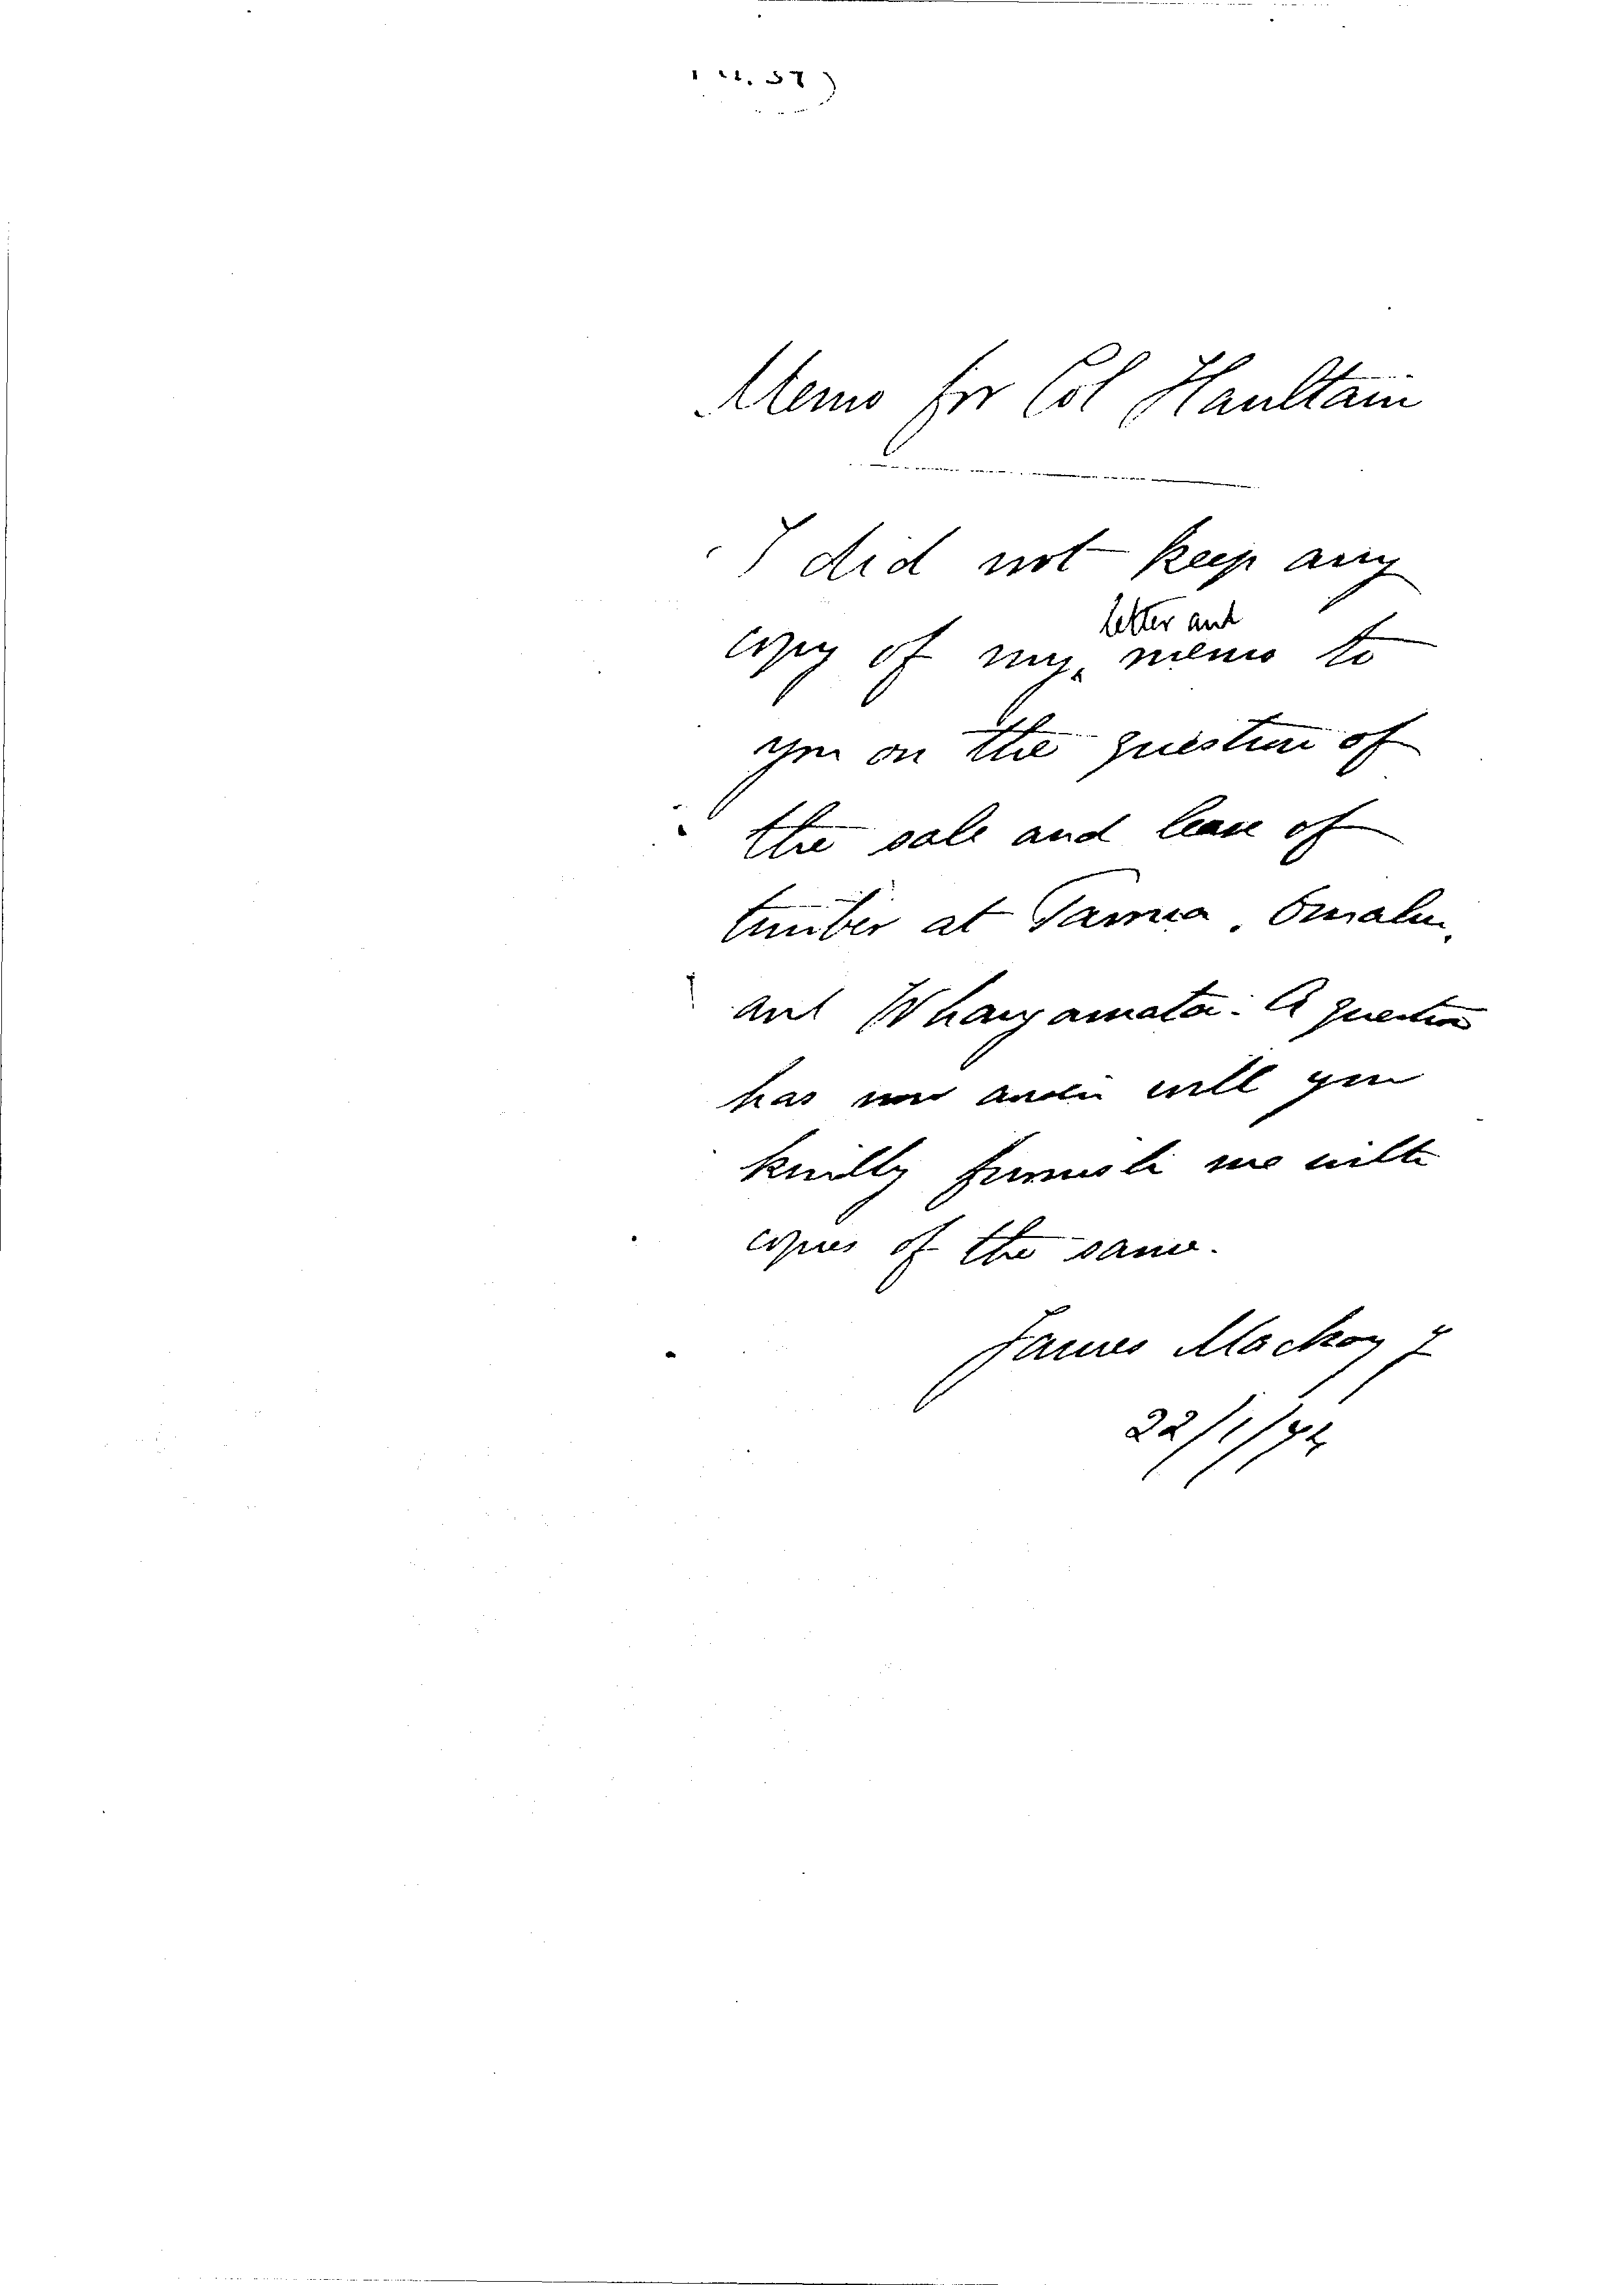 Memo for Col Haultain
I did not keep any
letter and
copy of my memo to
you on the question of
the sale and lease of
timber at Tairua, Omahu,
and Whangamata. A question
has now arisen will you
kindly furnish me with
copies of the same.
James Mackay Jr
22/1/74